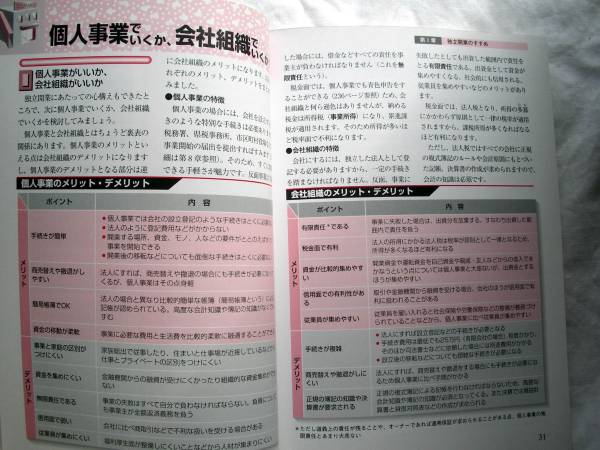 個人事業でいくか、会社組織でいくか
個人事業がいいか、
会社組織がいいか
独立開業にあたっての心構えもできた
ところで、次に個人事業でいくか、会社組織
でいくかを検討してみましょう。
個人事業と会社組織とはちょうど裏表の
関係にあります。個人事業のメリットとい
える点は会社組織のデメリットになります
し、個人事業のデメリットとなる部分は逆
に会社組織のメリットになります。
それのメリット、デメリットをま
みましょう。
●個人事業の特徴
個人事業の場合には、会社を設
きのような特別な手続きは必要あ
税務署、県税事務所、市区町村役場
業開始の届出を提出すればすみます
細は第8章参照)。そのため、すぐに
できる手軽さが魅力です。反面事業
個人事業のメリット・デメリット
ポイント
内容
メリット
手続きが簡単
●個人事業では会社の設立登記のような手続きはとくに必要
●法人のように登記費用などがかからない
●開業する場所、資金、モノ、人などの要件がととのえばすぐ
事業を開始できる
●開業後の移転などについても面倒な手続きはとくに必要
商売替えや撤退が
しやすい
法人にすれば、商売替えや撤退の場合にも手続きが必要にな
くるが、個人事業はその点身軽
簡易帳簿でOK
法人の場合と異なり比較的簡単な帳簿(簡易帳簿という)による
記帳が認められている。高度な会計知識や簿記の知識がなく
資金の移動が柔軟
事業に必要な費用と生活費を比較的柔軟に融通することができ
デメリット
事業と家庭の区別が
つけにくい
家族総出で従事したり、住まいと仕事場が近接しているなど
仕事とプライベートの区別がつけにくい
資金を集めにくい
金融機関からの融資が受けにくかったり組織的な資金集めがで
い
無限責任である
事業の失敗はすべて自分で負わなければならない。負債につ
も事業主が全額返済義務を負う
信用面で弱い
会社に比べ商取引などで不利な扱いを受ける場合がある
従業員が集めにくい
福利厚生が整備しにくいことなどから人材が集まりにくい
第1章 独立開業のすすめ
した場合には、借金などすべての責任を事
業主が負わなければなりません(これを無
限責任という)。
税金面では、個人事業でも青色申告をす
ることができる(236ページ参照)ため、会
社組織と何ら遜色はありませんが、納める
税金は所得税(事業所得)になり、累進課
税が適用されます。そのため所得が多いほ
ど税率が高くなります。
●会社組織の特徴
会社にするには、独立した法人として登
記する必要がありますから、一定の手続き
を踏まなければなりません。反面、事業に
失敗したとしても出資した範囲内で責任を
とる有限責任である、出資金として資金が
集めやすくなる、社会的にも信用される、
従業員を集めやすいなどのメリットがあり
ます。
税金面では、法人税となり、所得の多寡
にかかわらず原則として一律の税率が適用
されますから、課税所得が多くなればなる
ほど有利になります。
ただし、法人税ではすべての会社に正規
の複式簿記のルールや会計原則にもとづい
た記帳、決算書の作成が求められますので、
会計の知識は必須です。
会社組織のメリット・デメリット
ポイント
内容
メリット
有限責任*である
事業に失敗した場合は、出資分を放棄する、すなわち出資した範
囲内で責任を負う
税金面で有利
法人の所得にかかる法人税は税率が原則として一律となるため、
所得が多くなるほど有利になる
資金が比較的集めやすい
開業資金や運転資金を自己資金や親戚・友人などからの借入でま
かなうという点については個人事業と大差ないが、出資金とする
ほうが集めやすい
信用面での有利性があ
る
取引や金融機関から融資を受ける場合、会社のほうが信用面で有
利に扱われることがある
従業員が集めやすい
従業員を雇い入れると社会保険や労働保険などの整備が義務づけ
られていることなどから、個人事業に比べ従業員が集めやすい
デメリット
手続きが複雑
●法人にすれば設立登記などの手続きが必要になる
●手続き費用は最低でも25万円(有限会社の場合)程度かかり、
そのほか司法書士などに依頼した場合には報酬費用がかかる
●設立後の移転などについても登記が必要となる
商売替えや撤退がしに
くい
法人にすれば、商売替えや撤退の場合にも手続きが必要になるた
め個人事業に比べ手間がかかる
正規の簿記の知識や決
算書が要求される
*ただし道義上の責任が残ることや、オーナーであれば連帯保証が求められることがある点、個人事業の無
限責任とあまり大差ない
31